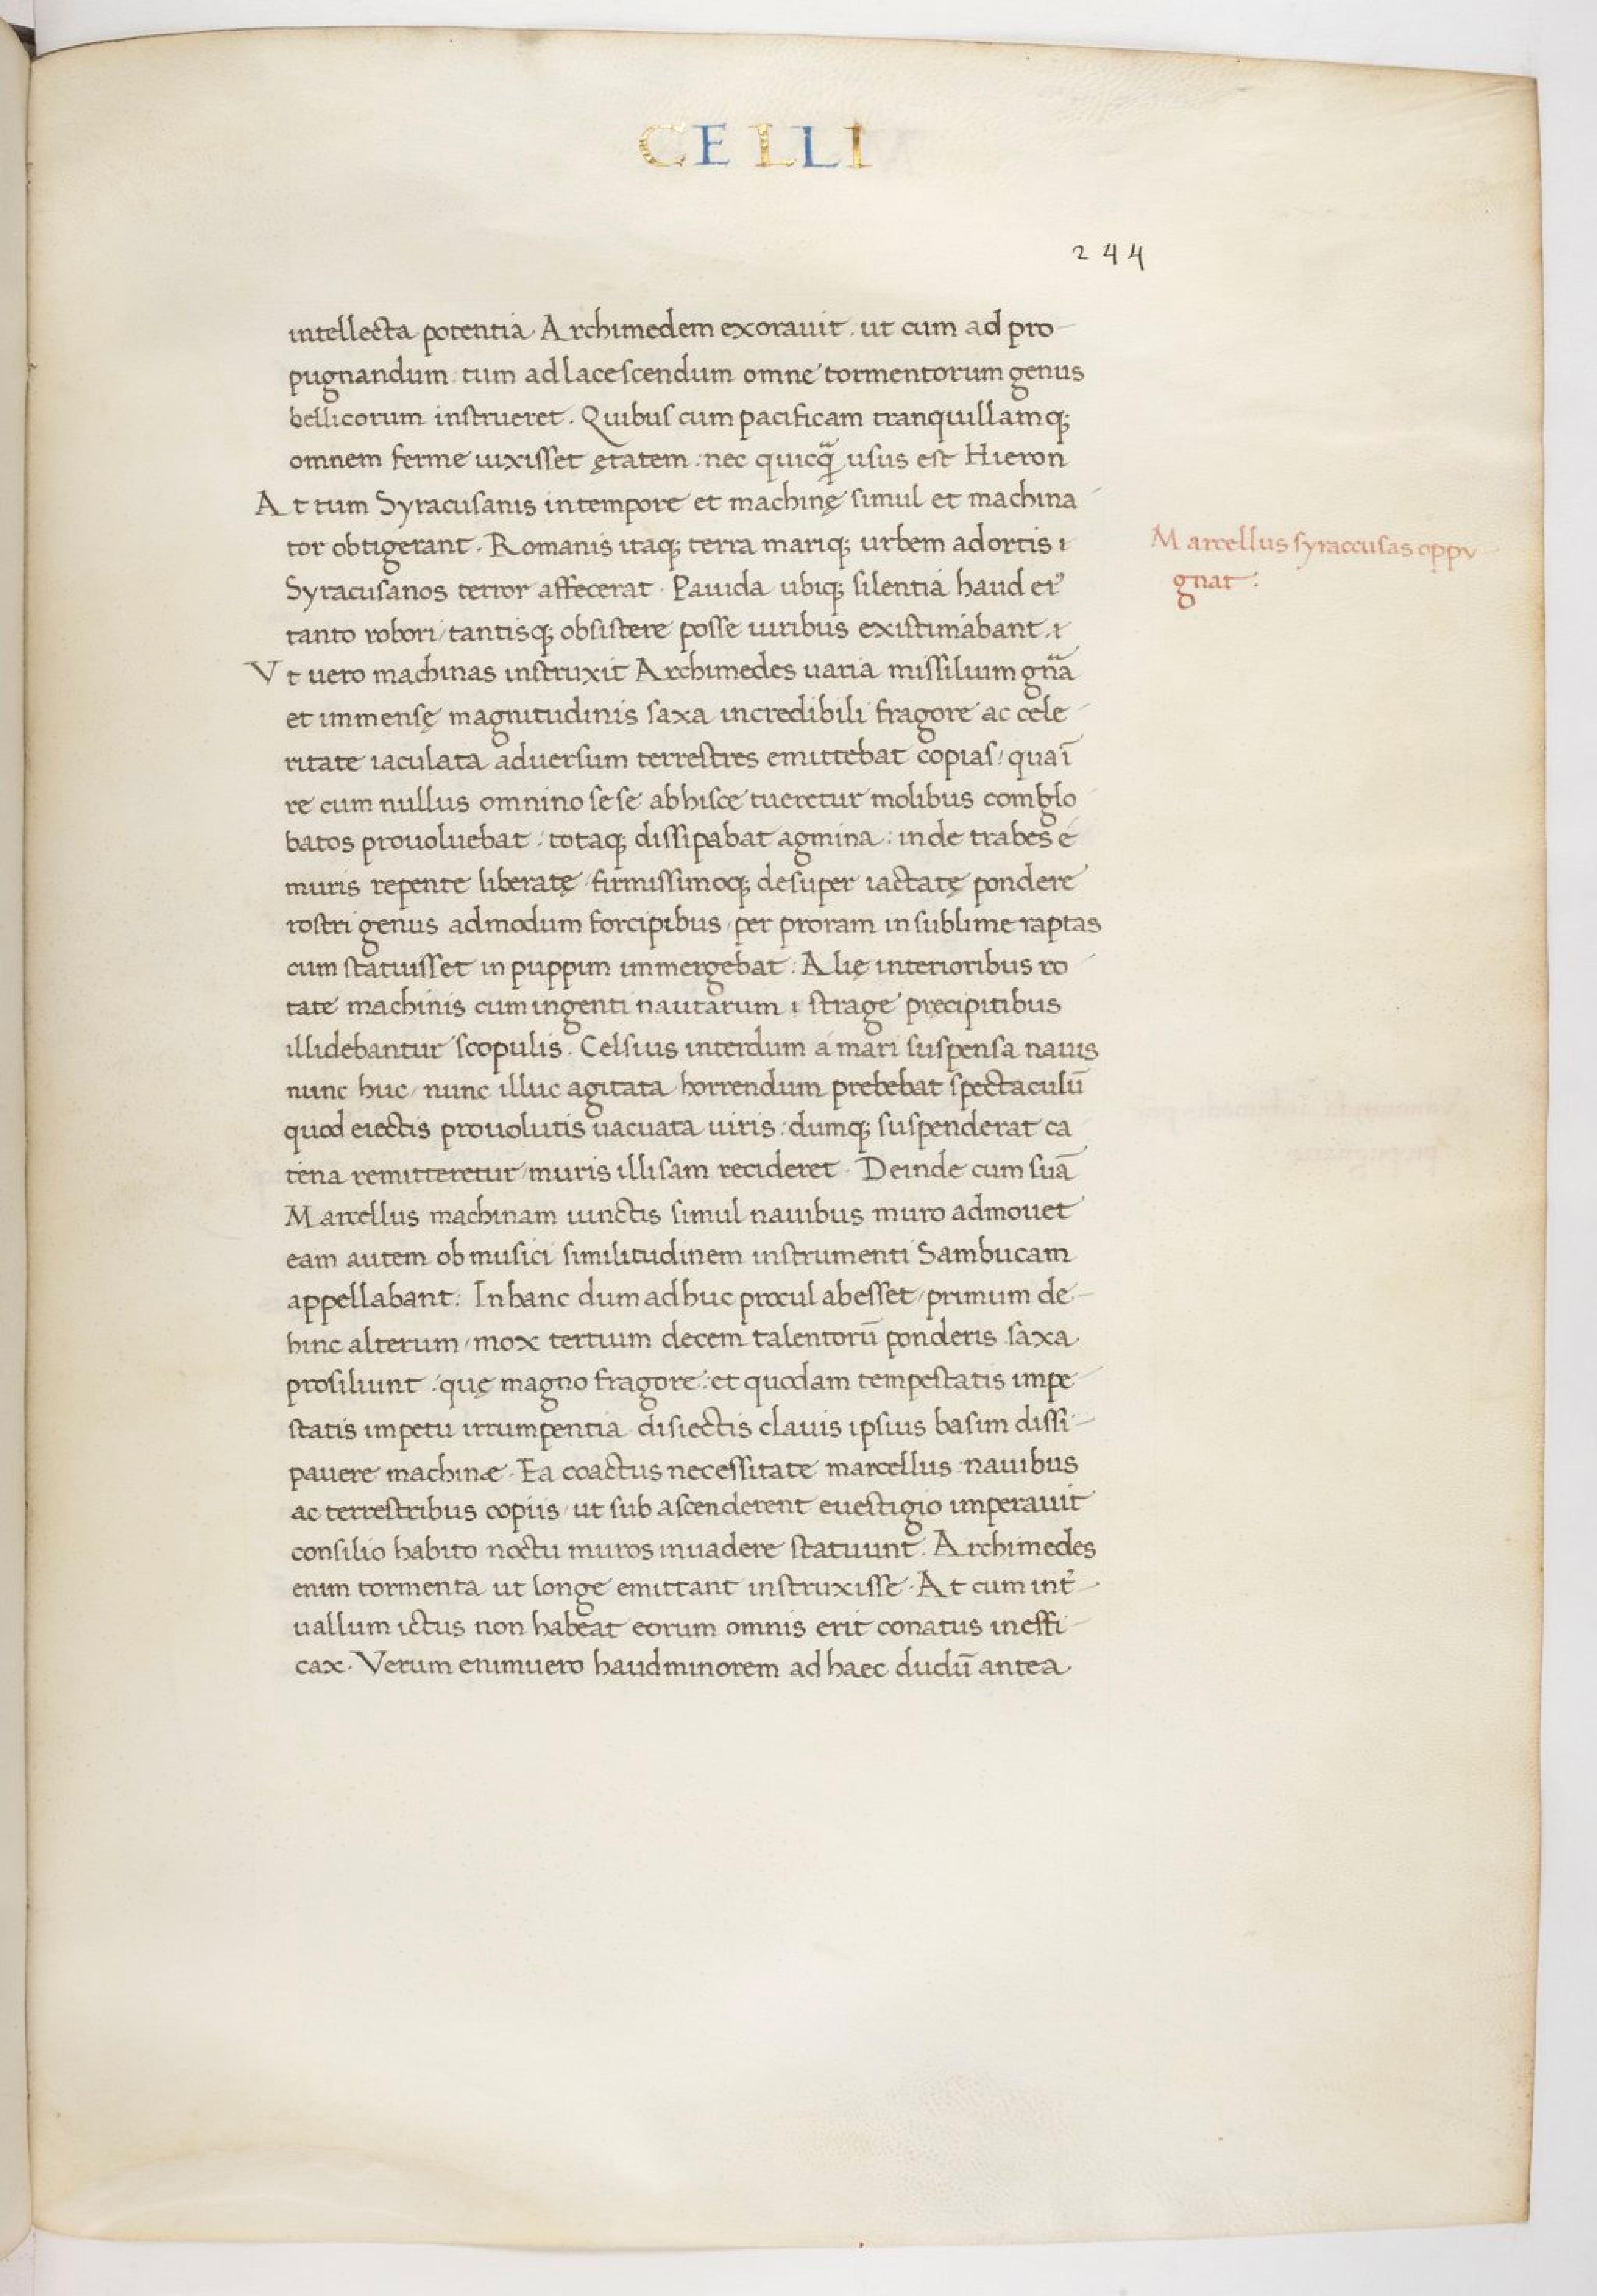 CELLI
244
intellecta potentia Archimedem exorauit. ut cum ad pro-
pugnandum: tum ad lacescendum omne tormentorum genus
bellicorum instrueret. Quibus cum pacificam tranquillamq;
omnem ferme uixisset ętatem: nec quicq̃ usus est Hieron
At tum Syracusanis in tempore et machinę simul et machina
tor obtigerant. Romanis itaq; terra mariq; urbem adortis
Marcellus syraccusas oppu
gnat:
Syracusanos terror affecerat. Pauida ubiq; silentia haud ei
tanto robori/ tantisq; obsistere posse uiribus existimabant.
Vt uero machinas instruxit Archimedes uaria missilium gña
et immensę magnitudinis saxa incredibili fragore ac cele
ritate iaculata aduersum terrestres emittebat copias/ qua ī
re cum nullus omnino sese ab hisce tueretur molibus comglo
batos prouoluebat: totaq; dissipabat agmina: inde trabes e
muris repente liberatę/ firmissimoq; desuper iactatę pondere
rostri genus admodum forcipibus/ per proram in sublime raptas
cum statuisset in puppim immergebat: Alię interioribus ro
tate machinis cum ingenti nautarum strage pręcipitibus
illidebantur scopulis. Celsius interdum a mari suspensa nauis
nunc huc/ nunc illuc agitata horrendum prebebat spectaculū
quod eiectis prouolutis uacuata uiris: dumq; suspenderat ca
tena remitteretur/ muris illisam recideret. Deinde cum suā
Marcellus machinam iunctis simul nauibus muro admouet
eam autem ob musici similitudinem instrumenti Sambucam
appellabant: In hanc dum adhuc procul abesset/ primum de-
hinc alterum/ mox tertium decem talentorū ponderis saxa
prosiliunt: quę magno fragore: et quodam tempestatis impe
statis impetu irrumpentia disiectis clauis ipsius basim dissi-
pauere machinæ. Ea coactus necessitate marcellus: nauibus
ac terrestribus copiis/ ut sub ascenderent euestigio imperauit
consilio habito noctu muros inuadere statuunt. Archimedes
enim tormenta ut longe emittant instruxisse. At cum int̃-
uallum ictus non habeat eorum omnis erit conatus ineffi
cax. Verum enimuero haud minorem ad haec dudū antea